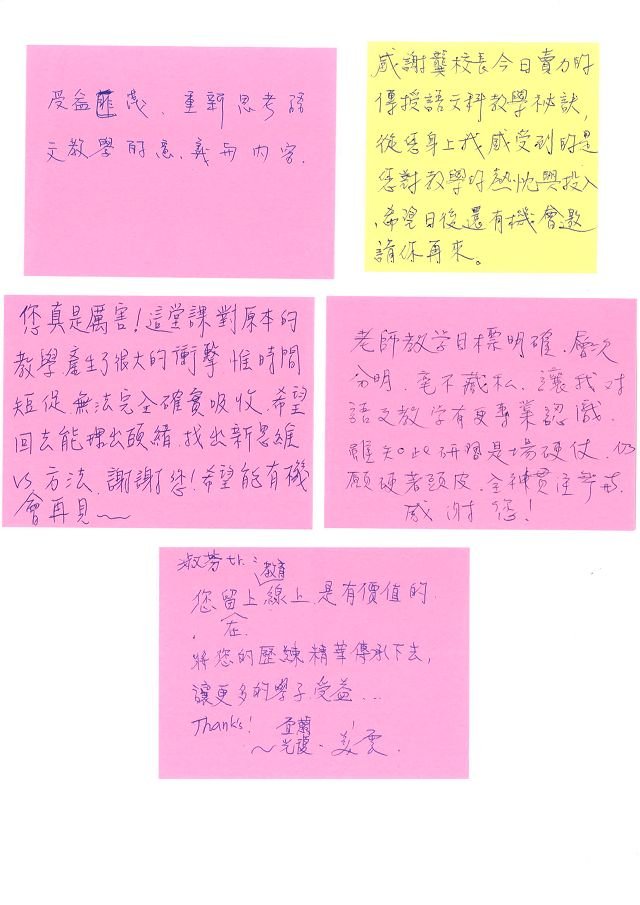 受益匪淺、重新思考語
文教學的意義與內容.
感謝龔校長今日賣力的
傳授語文科教學祕訣,
從您身上我感受到的是
您對教學的熱忱與投入
希望日後還有機會邀
請你再來。
您真是厲害!這堂課對原本的
教學產生了很大的衝擊 惟時間
短促 無法完全確實吸收、希望
回去能理出頭緒.找出新思維
vs 方法、謝謝您!希望能有機
會再見~
老師教学目標明確、層次
分明、毫不藏私、讓我对
語文教学有更專業認識.
雖知此研習是場硬仗、仍
願硬著頭皮、全神贯注参与.
感谢您!
淑芳 tr.:
教育
您留上線上 是有價值的.
在
將您的歷練精華傳承下去,
讓更多的學子受益...
Thanks! 宜蘭
~光復·美雲.